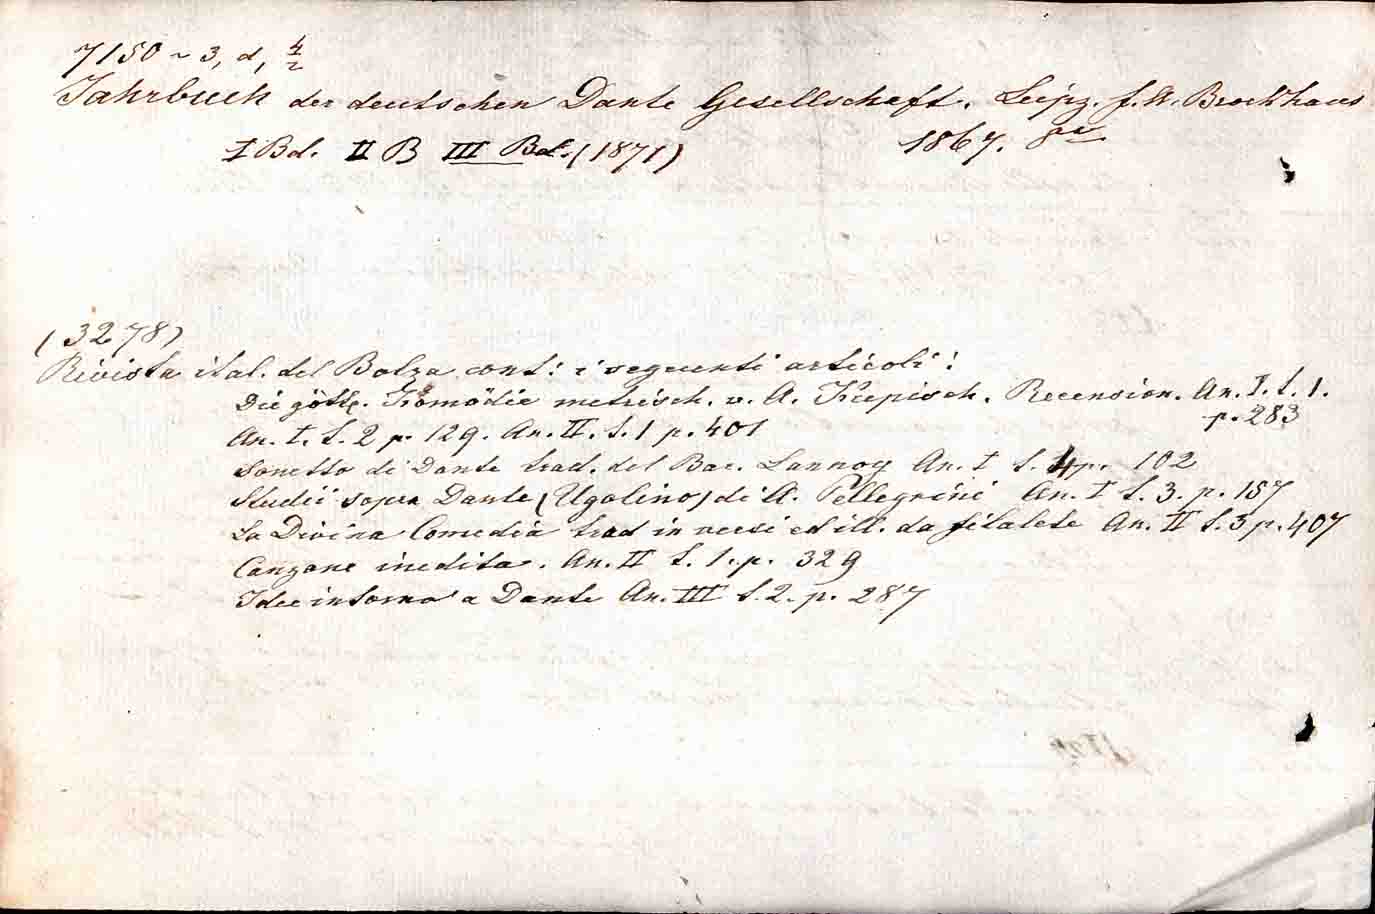 7150 ~ 3, d, 4/2
Jahrbuch der deutschen Dante Gesellschaft. Leipz. f. A. Brockhaus
I Bd. II B III Bd. (1871) 1867. 8vo
(3278)
Rivista ital. del Bolza cont: i seguenti articoli:
Die göttl. Komödie metrisch. v. A. Kopisch. Recension. An. I. t. 1.
p. 283
An. I. t. 2 p. 129. An. II. t. 1 p. 401
Sonetto di Dante trad. del Bar. Lannoy An. I t. 4 p. 102
Studii sopra Dante (Ugolino) di A. Pellegrini An. I t. 3. p. 157
La Divina Comedia trad in versi ed ill. da filalete An. II t. 3 p. 407
Canzone inedita. An. II t. 1. p. 329
Idee intorno a Dante An. III t. 2. p. 287